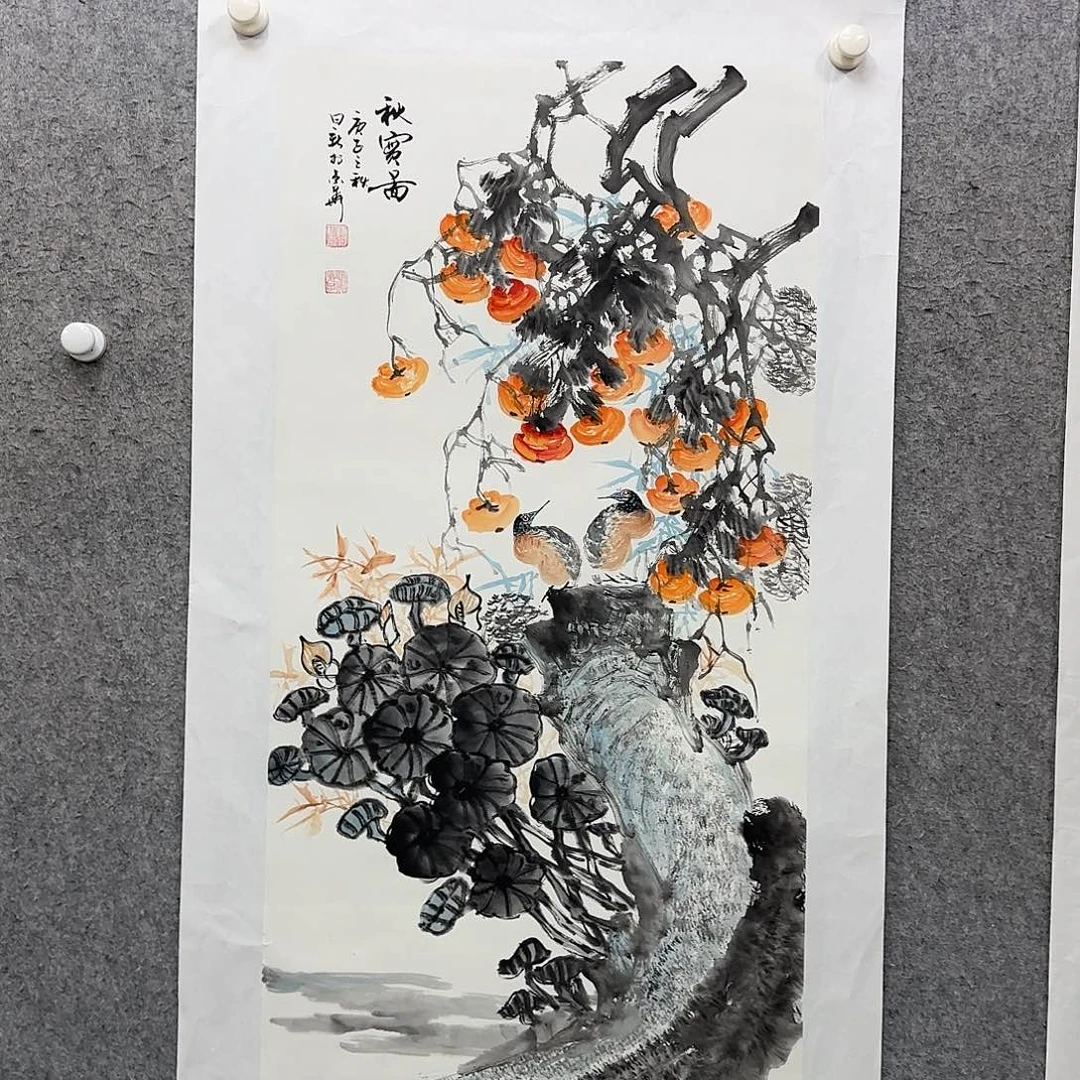 秋實圖
庚子之秋
日新於京華